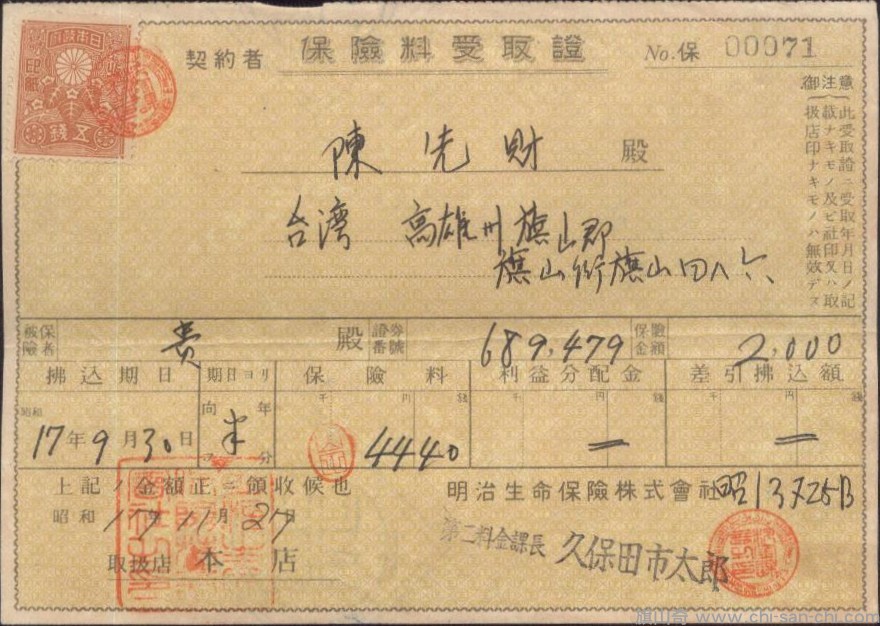 契約者 保險料受取證 No.保 00071
御注意
此受取證ニ受取年月日ノ記
載ナキモノ及ビ社印又ハ取
扱店印ナキモノハ無效デス
印紙
五錢
陳先財 殿
台湾 高雄州旗山郡
旗山街旗山四八六
被保險者 貴 殿 證券番號 689,479 保險金額 2,000
拂込期日 期日ヨリ 保險料 利益分配金 差引拂込額
千 円 錢 千 円 錢 千 円 錢
昭和 17年9月30日 向 半年分 4440
上記ノ金額正ニ領收候也
昭和17年11月27日
取扱店 本店
明治生命保險株式會社
昭13年7月25日
第二料金課長 久保田市太郎
旗山奇 www.chi-san-chi.com